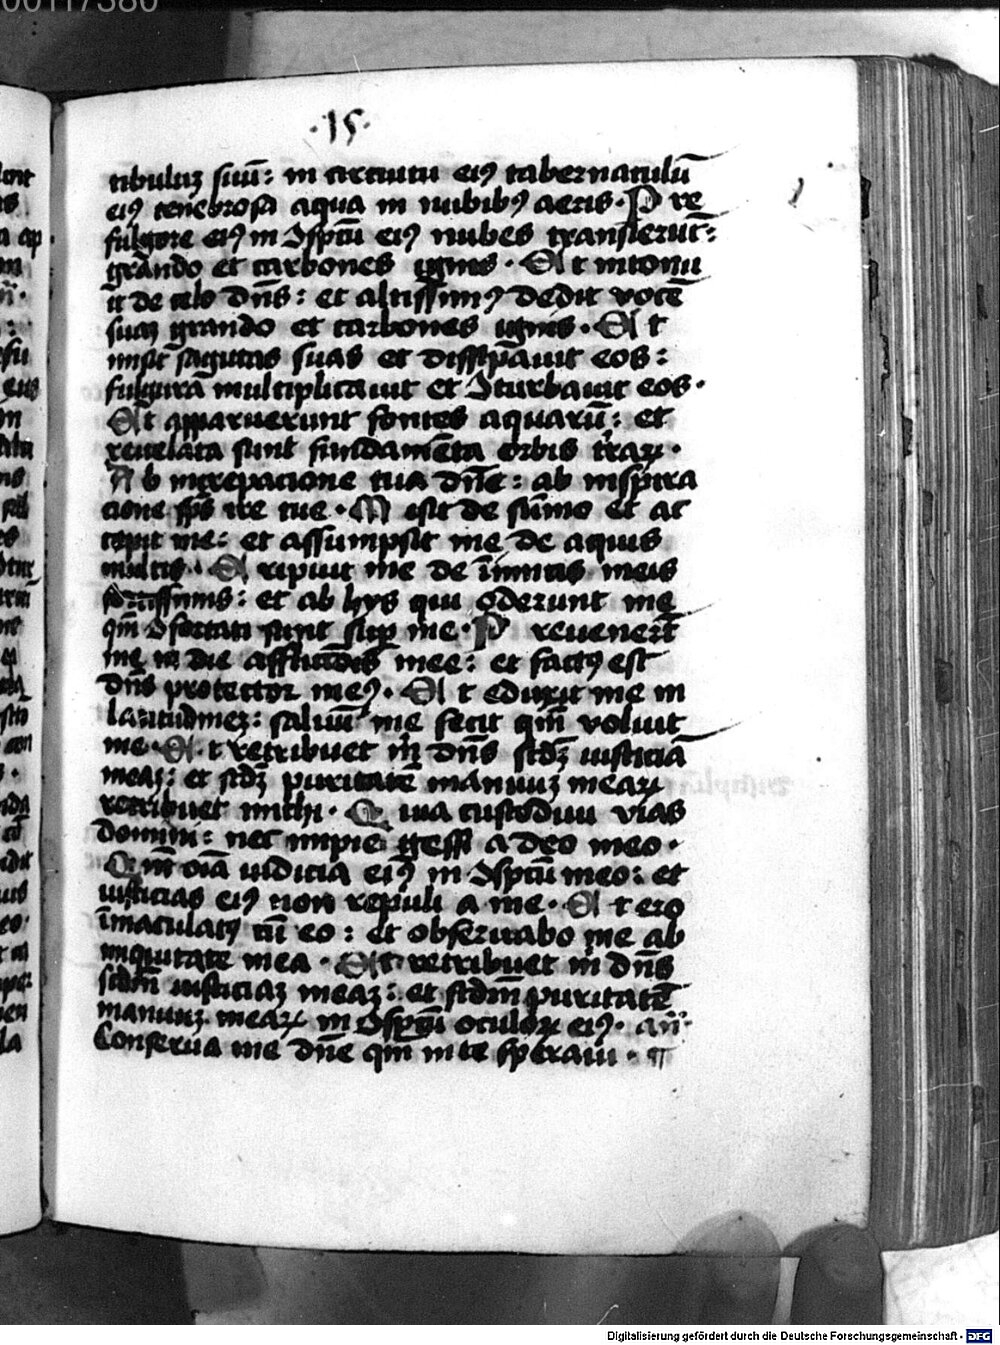 00117380
·15·
tibuluʒ suū: in circuitu eiꝰ tabernaculū
eiꝰ tenebrosa aqua in nubibꝰ aeris· P re
fulgore eiꝰ in ɔspcū eiꝰ nubes transierūt:
grando et carbones ignis · E t intonu
it de celo dn̄s: et altissimꝰ dedit vocē
suaʒ grando et carbones ignis · E t
misit sagittas suas et dissipauit eos:
fulgura multiplicauit et ɔturbauit eos·
Et apparuerunt fontes aquarū: et
reuelata sunt fundamēta orbis t̄raꝝ ·
A b increpacione tua dn̄e: ab inspira
cione sp̄s ire tue · M isit de sūmo et ac
cepit me: et assumpsit me de aquis
multis · E ripuit me de īimicis meis
fortissimis: et ab hys qui oderunt me
qm̄ ɔfortati sunt sup me · P reuenerūt
me in die afflictōis mee: et factꝰ est
dn̄s protector meꝰ · E t eduxit me in
latitudineʒ: saluū me fecit qm̄ voluit
me · E t retribuet m̄ dn̄s scdʒ iusticiā
meaʒ: et scdʒ puritatē manuuʒ meaꝝ
retribuet michi · Q uia custodiui vias
domini: nec impie gessi a deo meo ·
Q m̄ oīa iudicia eiꝰ in ɔspcū meo: et
iusticias eiꝰ non repuli a me · E t ero
īmaculatꝰ cū eo: et obseruabo me ab
iniquitate mea · Et retribuet m̄ dn̄s
scdm̄ iusticiaʒ meaʒ: et scdm̄ puritatē
manuuʒ meaꝝ in ɔspcū oculoꝝ eiꝰ · añ·
Conserua me dn̄e qm̄ in te speraui · ¶
Digitalisierung gefördert durch die Deutsche Forschungsgemeinschaft - DFG